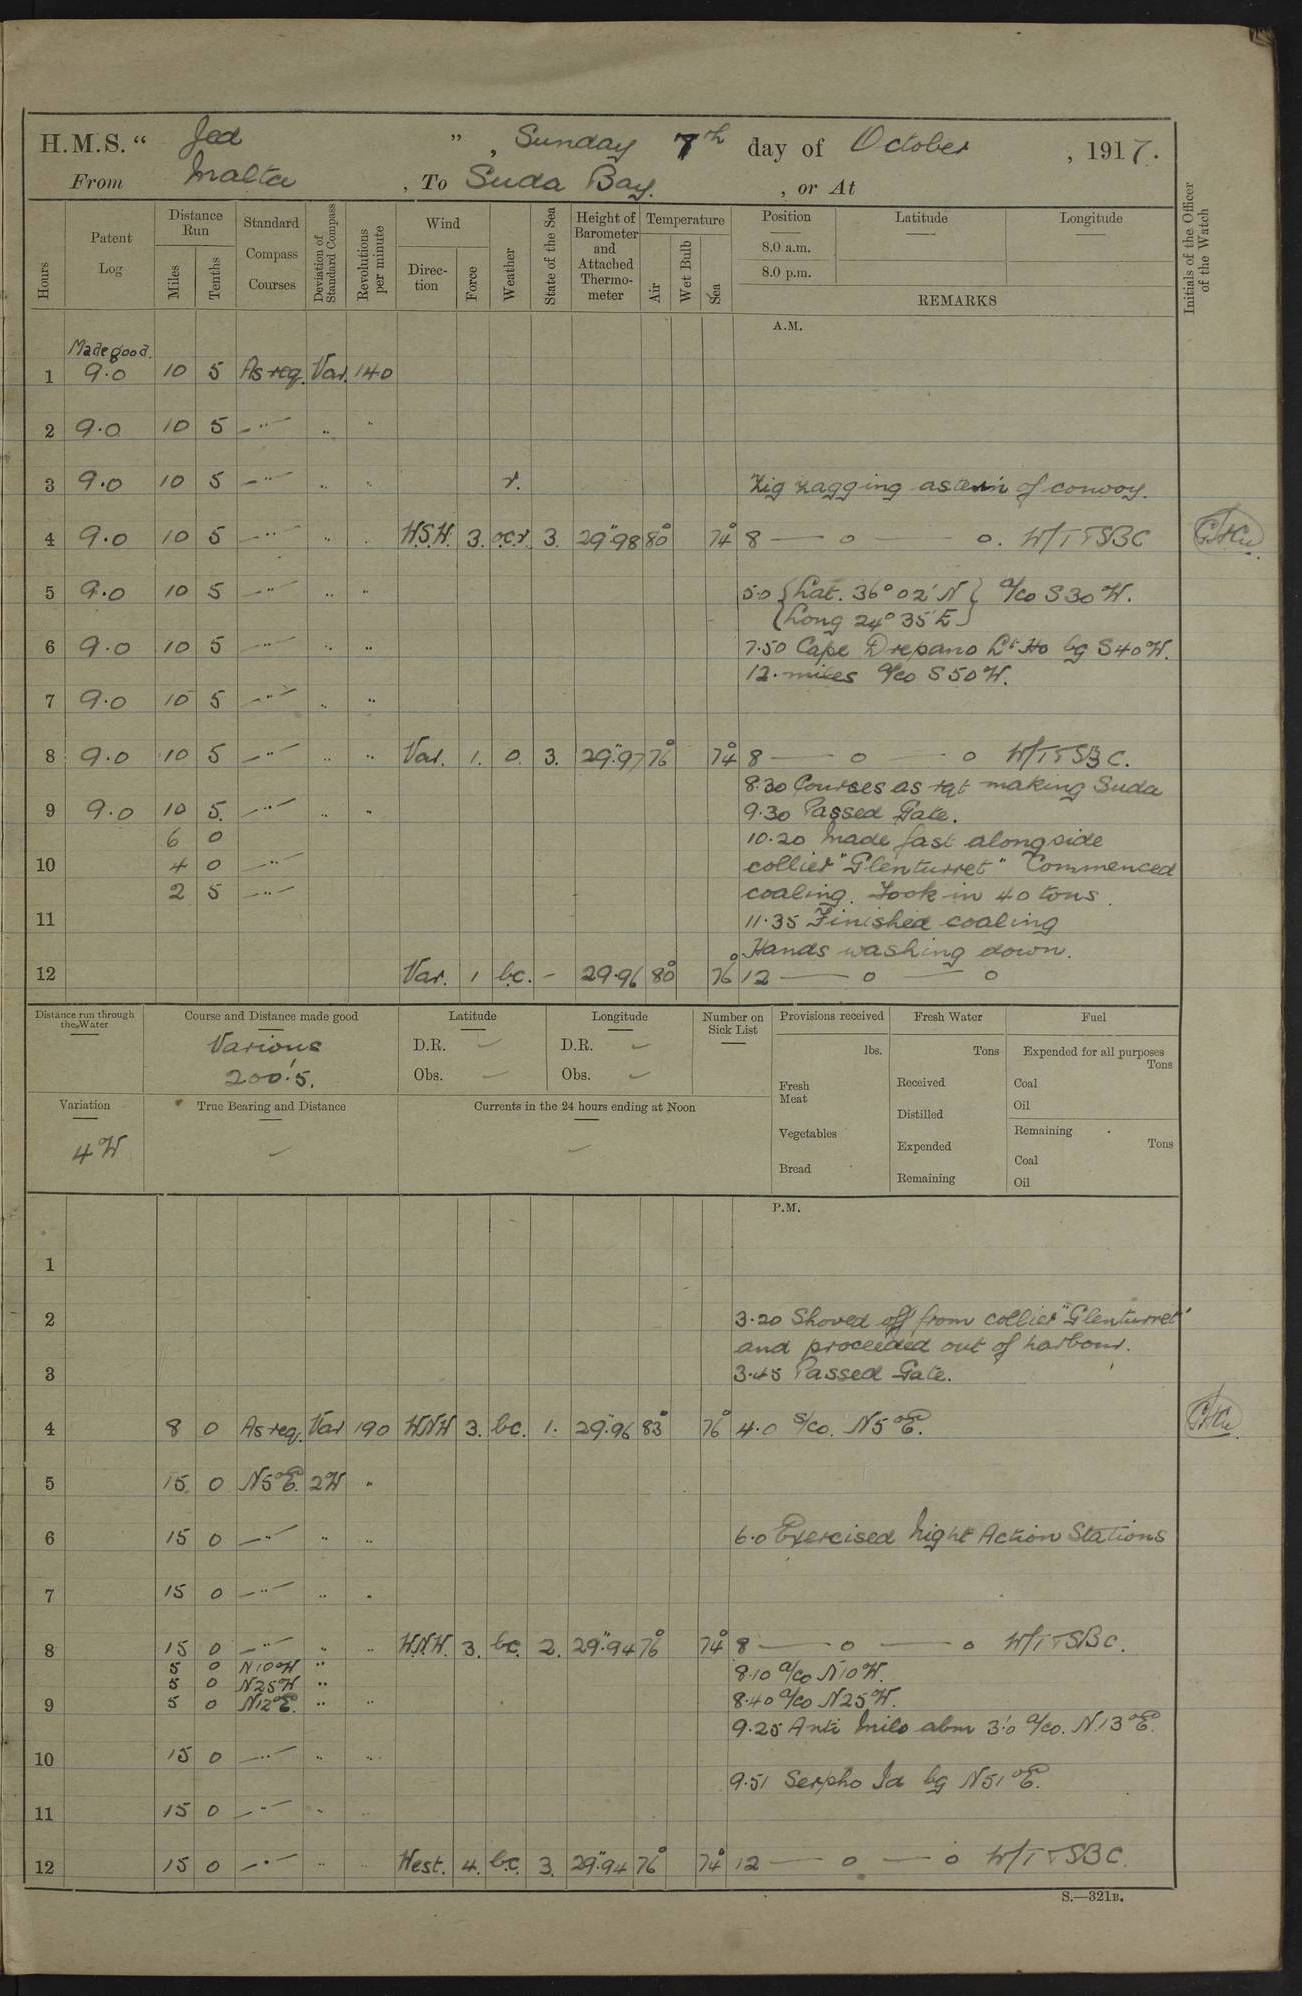 H.M.S. " Jed " , Sunday 7th day of October , 1917.
From Malta , To Suda Bay. , or At
Initials of the Officer of the Watch
Hours
Patent Log
Distance Run
Miles
Tenths
Standard Compass Courses
Deviation of Standard Compass
Revolutions per minute
Wind
Direction
Force
Weather
State of the Sea
Height of Barometer and Attached Thermometer
Temperature
Air
Wet Bulb
Sea
Position
Latitude
Longitude
8.0 a.m.
8.0 p.m.
REMARKS
A.M.
Made good.
1 9.0 10 5 As req. Var. 140
2 9.0 10 5 —"— " "
3 9.0 10 5 —"— " " r. Zig zagging astern of convoy.
4 9.0 10 5 —"— " " W.S.W. 3. o.c.r. 3. 29".98 80° 74° 8 — o — o. W/T TSBC
5 9.0 10 5 —"— " " 5.0 { Lat. 36° 02' N } a/co S30°W.
{ Long 24° 35' E }
6 9.0 10 5 —"— " " 7.50 Cape Drepano Lt Ho bg S40°W.
12. miles a/co S50°W.
7 9.0 10 5 —"— " "
8 9.0 10 5 —"— " " Var. 1. o. 3. 29".97 76° 74° 8 — o — o W/T TSBC.
8.30 Courses as rqt making Suda
9 9.0 10 5. —"— " " 9.30 Passed Gate.
6 0 10.20 Made fast alongside
10 4 0 —"— collier "Glenturret" Commenced
2 5 —"— coaling. Took in 40 tons.
11 11.35 Finished coaling
Hands washing down.
12 Var. 1 b.c. - 29.96 80° 76° 12 — o — o
Distance run through the Water
Course and Distance made good
Various
200'.5.
Latitude
D.R. —
Obs. —
Longitude
D.R. —
Obs. —
Number on Sick List
Provisions received
lbs.
Fresh Meat
Vegetables
Bread
Fresh Water
Tons
Received
Distilled
Expended
Remaining
Fuel
Expended for all purposes
Tons
Coal
Oil
Remaining
Tons
Coal
Oil
Variation
4°W
True Bearing and Distance
—
Currents in the 24 hours ending at Noon
—
P.M.
1
2 3.20 Shoved off from collier "Glenturret"
and proceeded out of harbour.
3 3.45 Passed Gate.
4 8 0 As req. Var 190 WNW 3. bc. 1. 29".96 83° 76° 4.0 s/co. N5°E.
5 15 0 N5°E. 2W "
6 15 0 —"— " " 6.0 Exercised Night Action Stations
7 15 0 —"— " "
8 15 0 —"— " " W.N.W. 3. bc. 2. 29".94 76° 74° 8 — o — o W/T TSBC.
5 0 N10°W " 8.10 a/co N10°W.
5 0 N25°W " 8.40 a/co N25°W.
9 5 0 N12°E. " "
9.25 Anti Milo abm 3'.0 a/co. N.13°E.
10 15 0 —"— " "
9.51 Serpho Id bg N51°E.
11 15 0 —"— " "
12 15 0 —"— " " West. 4. b.c. 3. 29".94 76° 74° 12 — o — o W/T TSBC.
S.—321B.